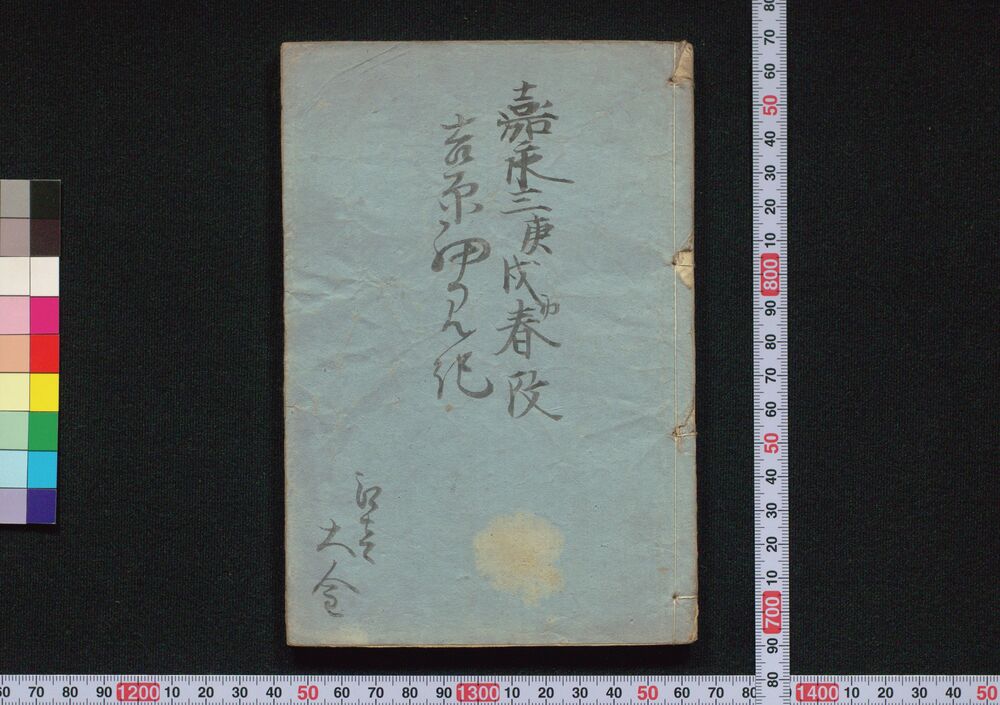 嘉永三庚戌春改
吉原細見記
大金
80 70 60 50 40 30 20 10 800 90 80 70 60 50 40 30 20 10 700 90 80
60 70 80 90 1200 10 20 30 40 50 60 70 80 90 1300 10 20 30 40 50 60 70 80 1400 10 20 30 40 50